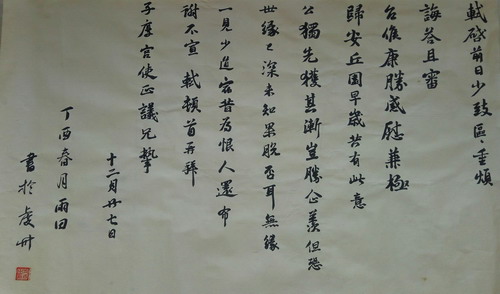 軾啓前日少致區〻重煩
誨答且審
台候康勝感慰兼極
歸安丘園早歲共有此意
公獨先獲其漸豈勝企羨但恐
世緣已深未知果脫否耳無緣
一見少道宿昔為恨人還布
謝不宣 軾頓首再拜
子厚宮使正議兄執事
十二月廿七日
丁酉春月雨田
書於